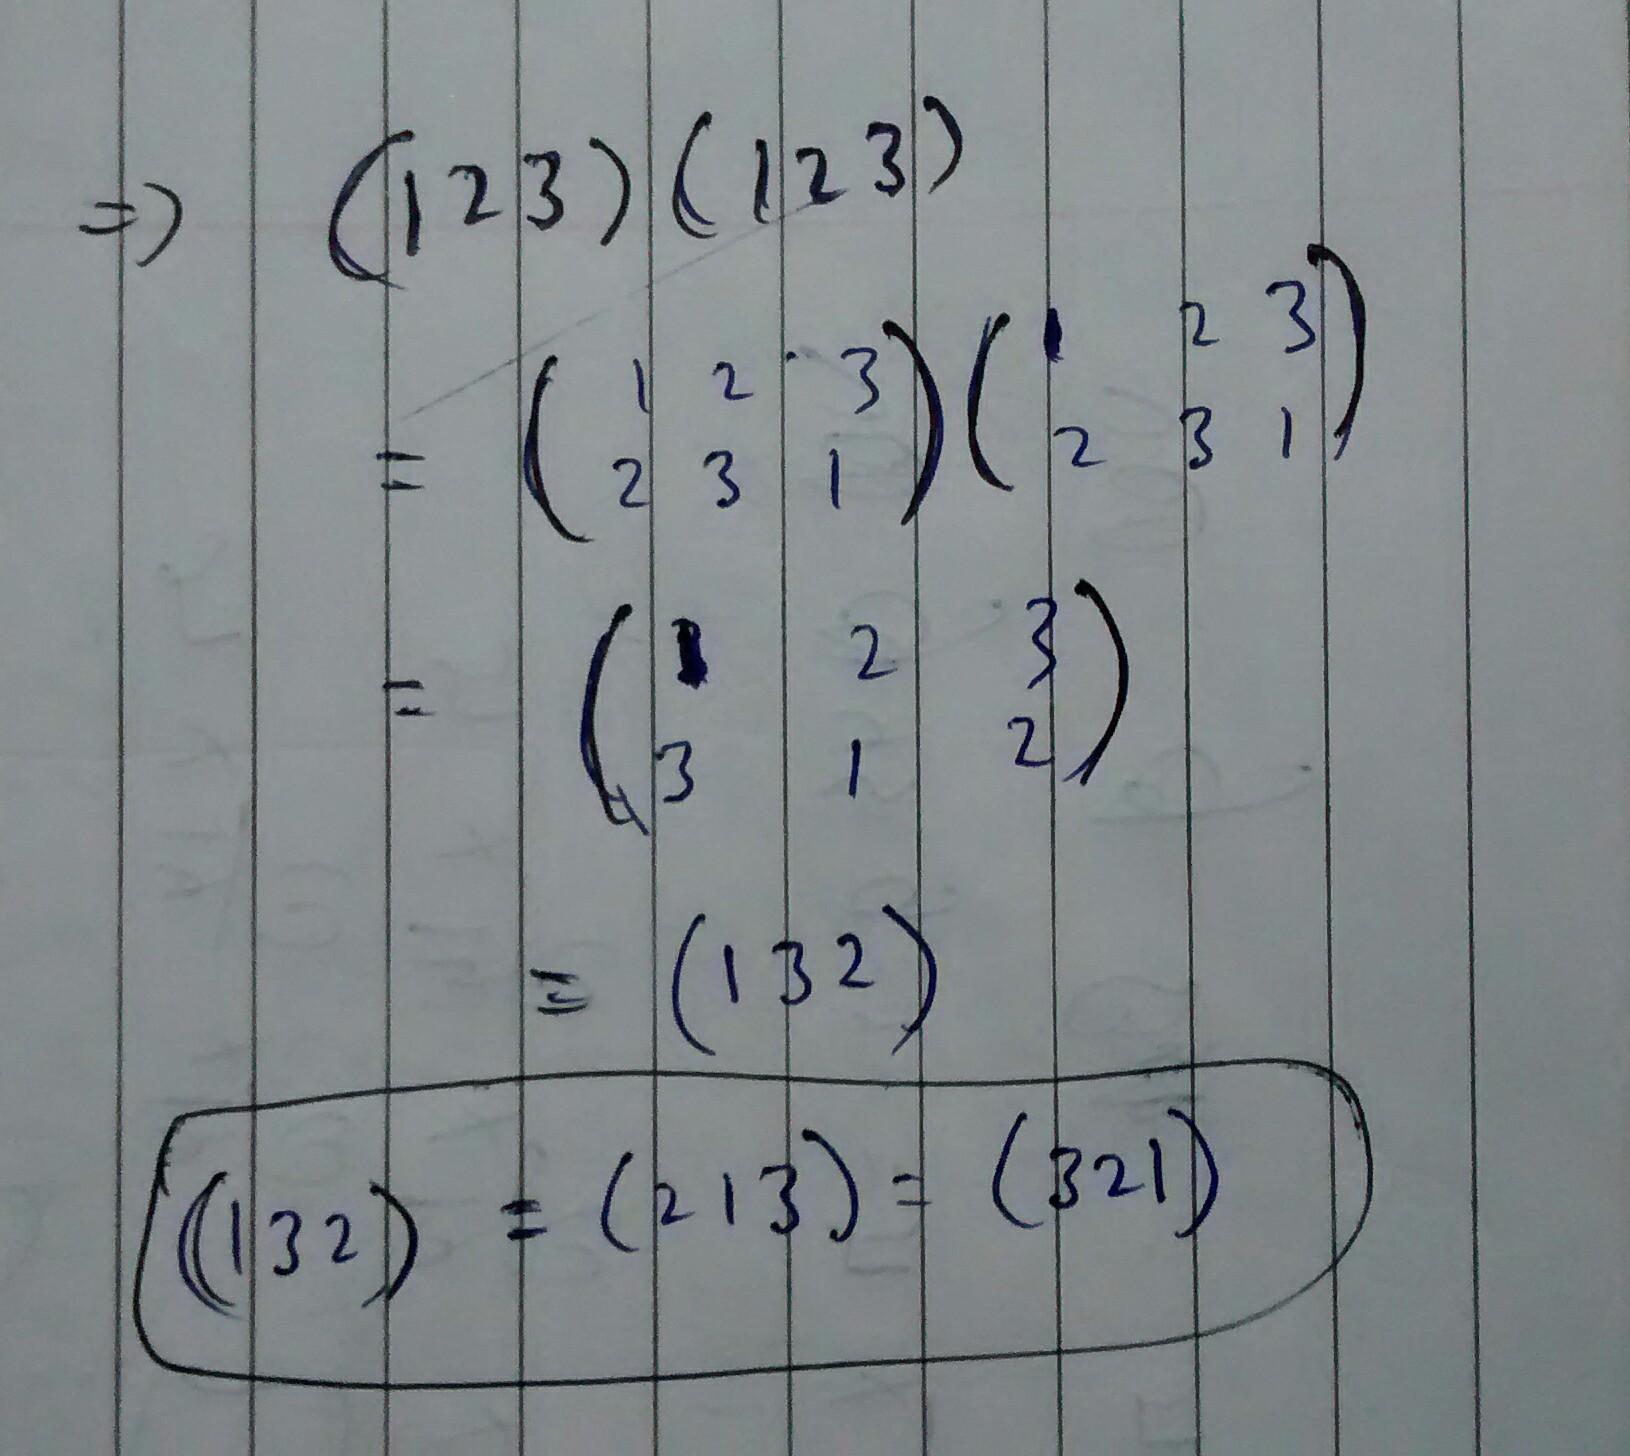 => (1 2 3) (1 2 3)
= ( 1 2 3 ) ( 1 2 3 )
( 2 3 1 ) ( 2 3 1 )
= ( 1 2 3 )
( 3 1 2 )
= (1 3 2)
(1 3 2) = (2 1 3) = (3 2 1)